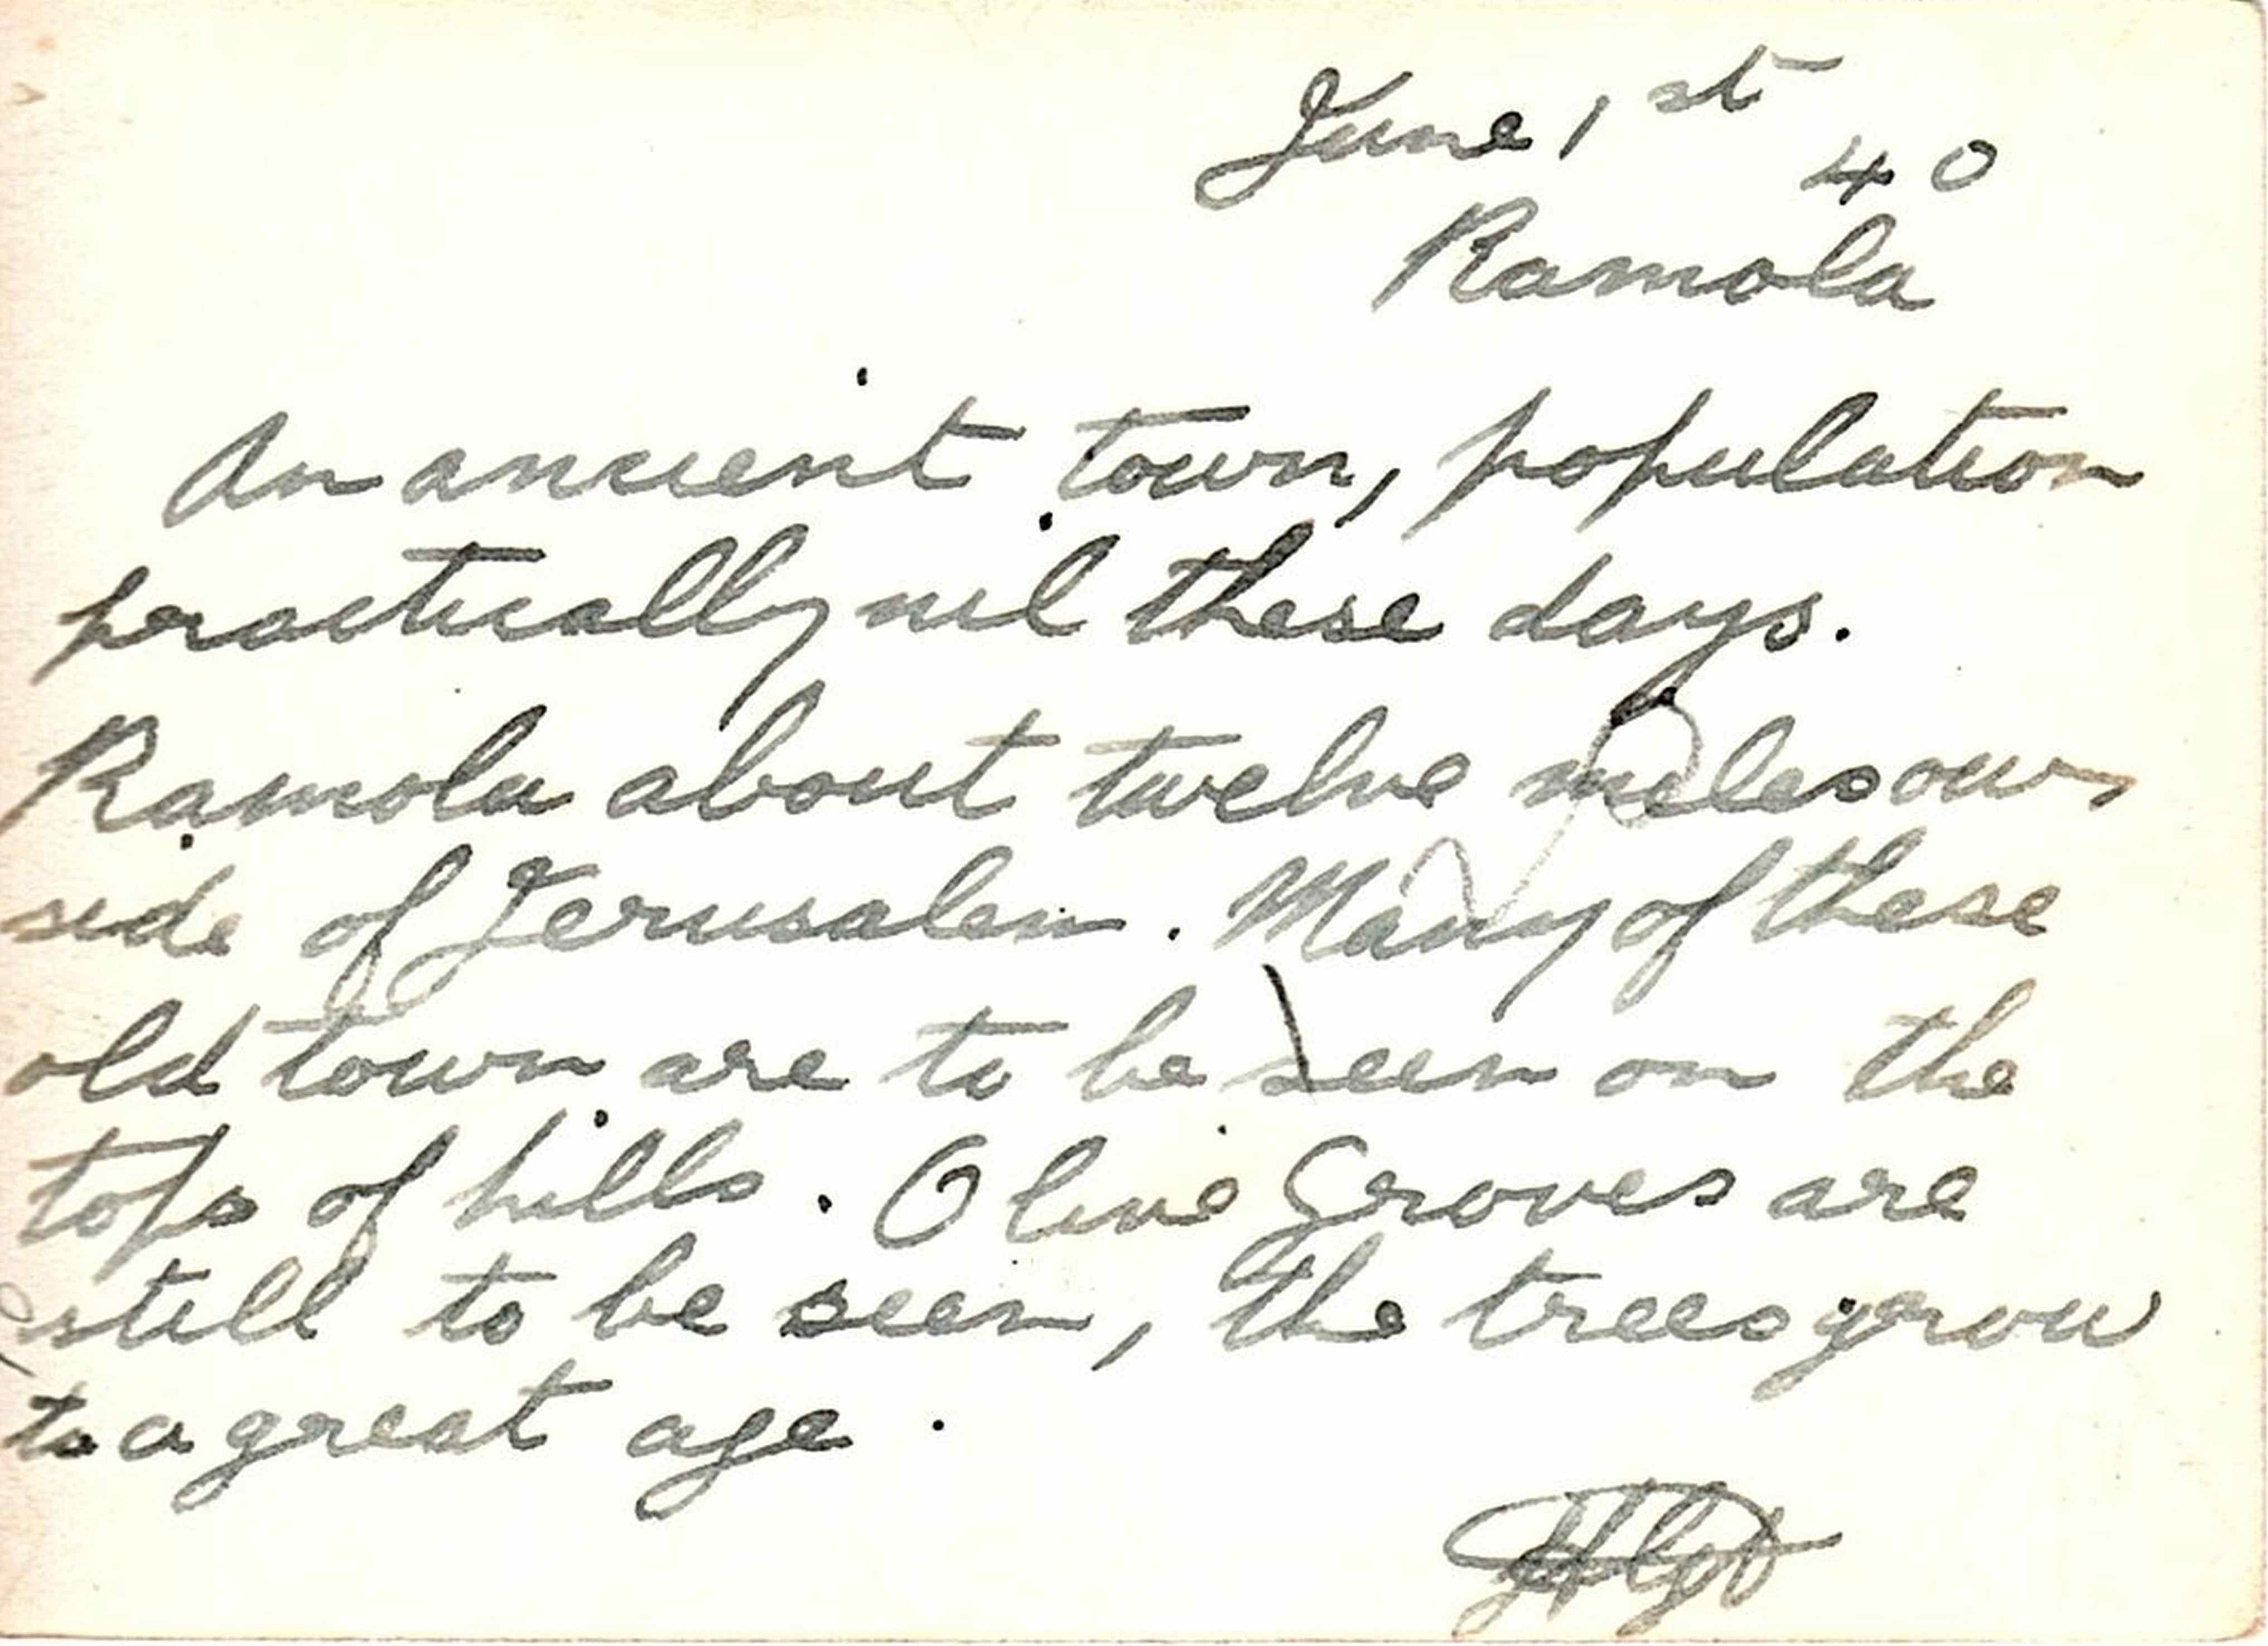 June 1st
40
Ramola
An ancient town, population
practically nil these days.
Ramola about twelve miles
side of Jerusalem. Many of these
old town are to be seen on the
tops of hills. Olive Groves are
still to be seen, the trees grow
to a great age.